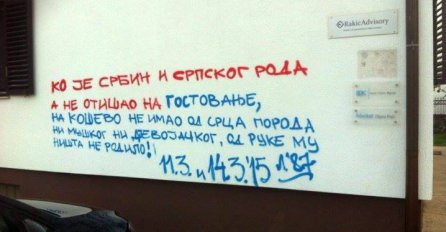 КО ЈЕ СРБИН И СРПСКОГ РОДА
А НЕ ОТИШАО НА ГОСТОВАЊЕ,
НА КОШЕВО НЕ ИМАО ОД СРЦА ПОРОДА
НИ МУШКОГ НИ ДЕВОЈАЧКОГ, ОД РУКЕ МУ
НИШТА НЕ РОДИЛО!
11.3. и 14.3.'15 1'87
RakicAdvisory